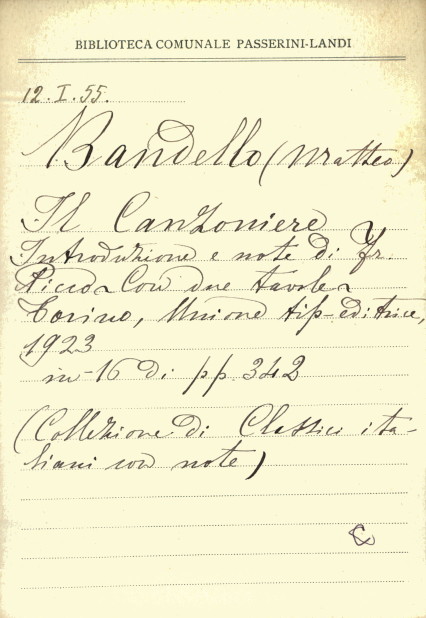 BIBLIOTECA COMUNALE PASSERINI-LANDI
12.I.55.
Bandello (Matteo)
Il Canzoniere
Introduzione e note di Fr.
Picco. Con due tavole.
Torino, Unione tip-editrice,
1923
in-16 di pp. 342
(Collezione di Classici ita-
liani con note)